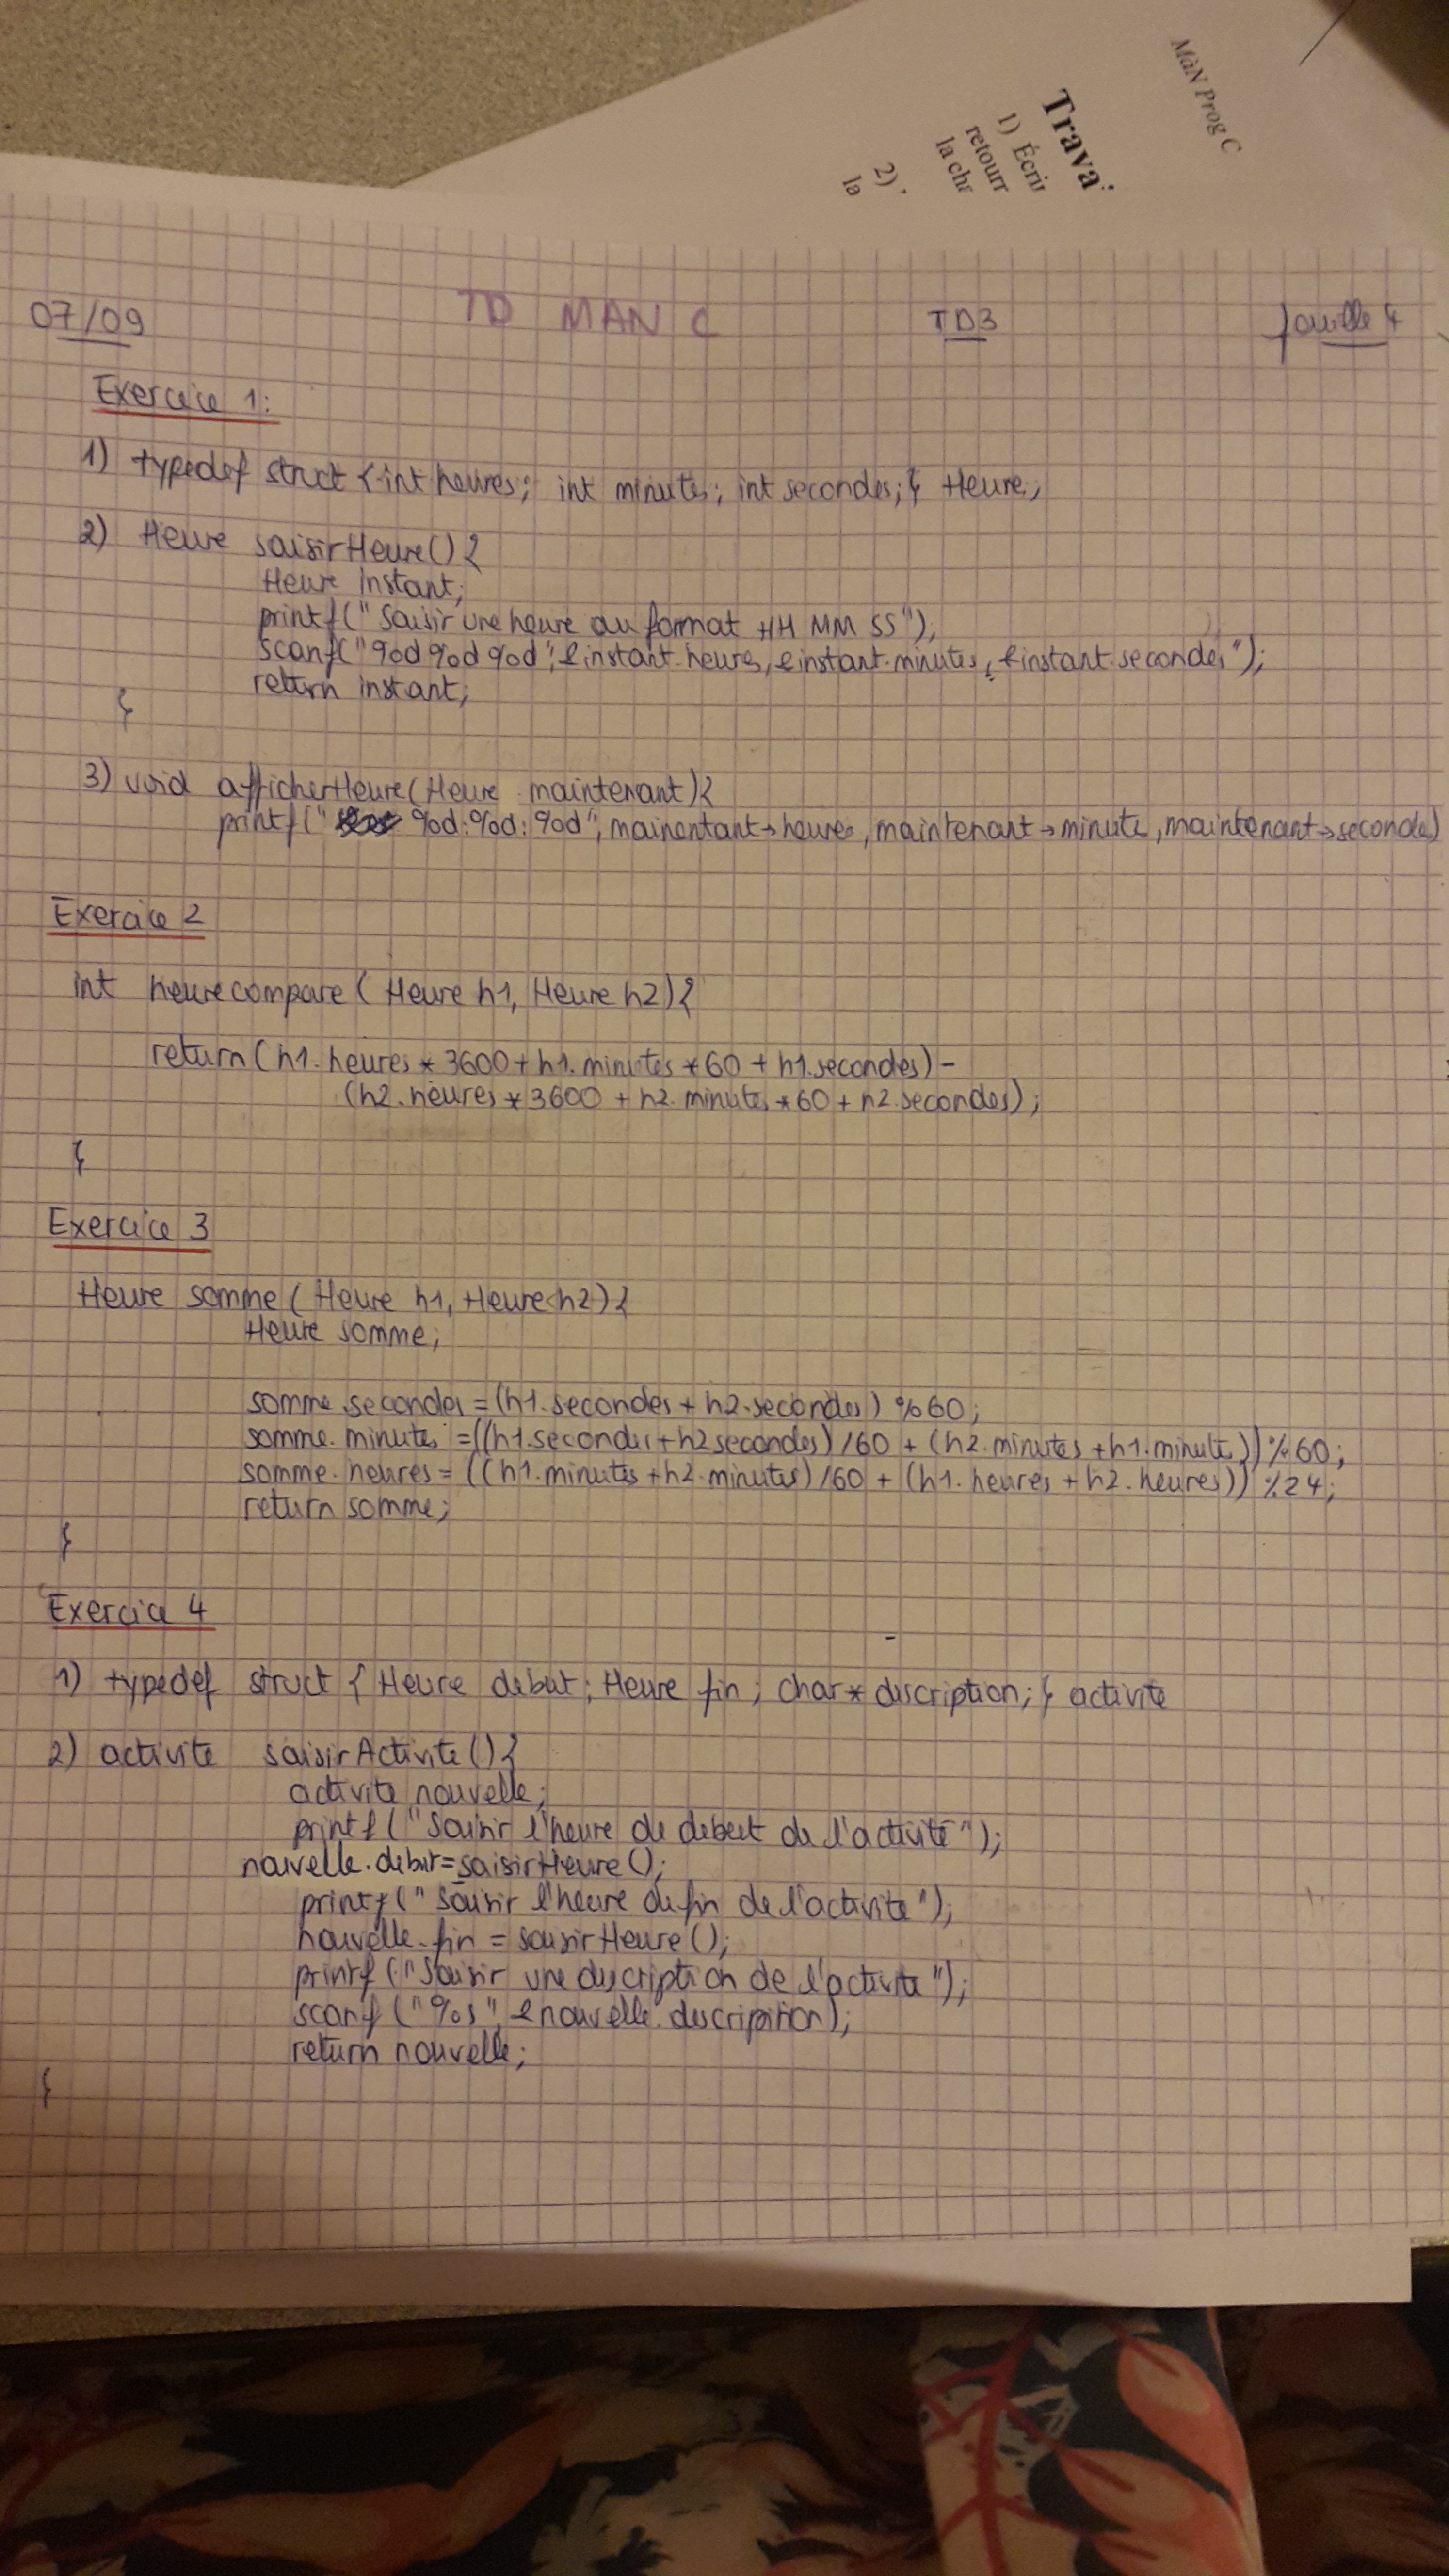 MàN Prog C
Trava
1) Écri
retour
la cha
2)
la
07/09 TD MAN C TD3 fouille 4
Exercice 1:
1) typedef struct {int heures; int minutes; int secondes;} Heure;
2) Heure saisirHeure(){
Heure instant;
printf("Saisir une heure au format HH MM SS");
scanf("%d %d %d", &instant.heures, &instant.minutes, &instant.secondes");
return instant;
}
3) void afficherHeure(Heure maintenant){
printf(" %d:%d:%d", mainentant→heures, maintenant→minute, maintenant→seconde)
Exercice 2
int heurecompare(Heure h1, Heure h2){
return(h1.heures*3600+h1.minutes*60+h1.secondes)-
(h2.heures*3600+h2.minutes*60+h2.secondes);
}
Exercice 3
Heure somme(Heure h1, Heure h2){
Heure somme;
somme.secondes=(h1.secondes+h2.secondes)%60;
somme.minutes=((h1.secondes+h2secondes)/60+(h2.minutes+h1.minutes))%60;
somme.heures=((h1.minutes+h2.minutes)/60+(h1.heures+h2.heures))%24;
return somme;
}
Exercice 4
1) typedef struct {Heure debut; Heure fin; char* discription;} activite
2) activite saisirActivite(){
activite nouvelle;
printf("Saisir l'heure de debut de l'activité");
nouvelle.debut=saisirHeure();
printf("Saisir l'heure de fin de l'activite");
nouvelle.fin = saisirHeure();
printf("Saisir une discription de l'activite");
scanf("%s", &nouvelle.discription);
return nouvelle;
}